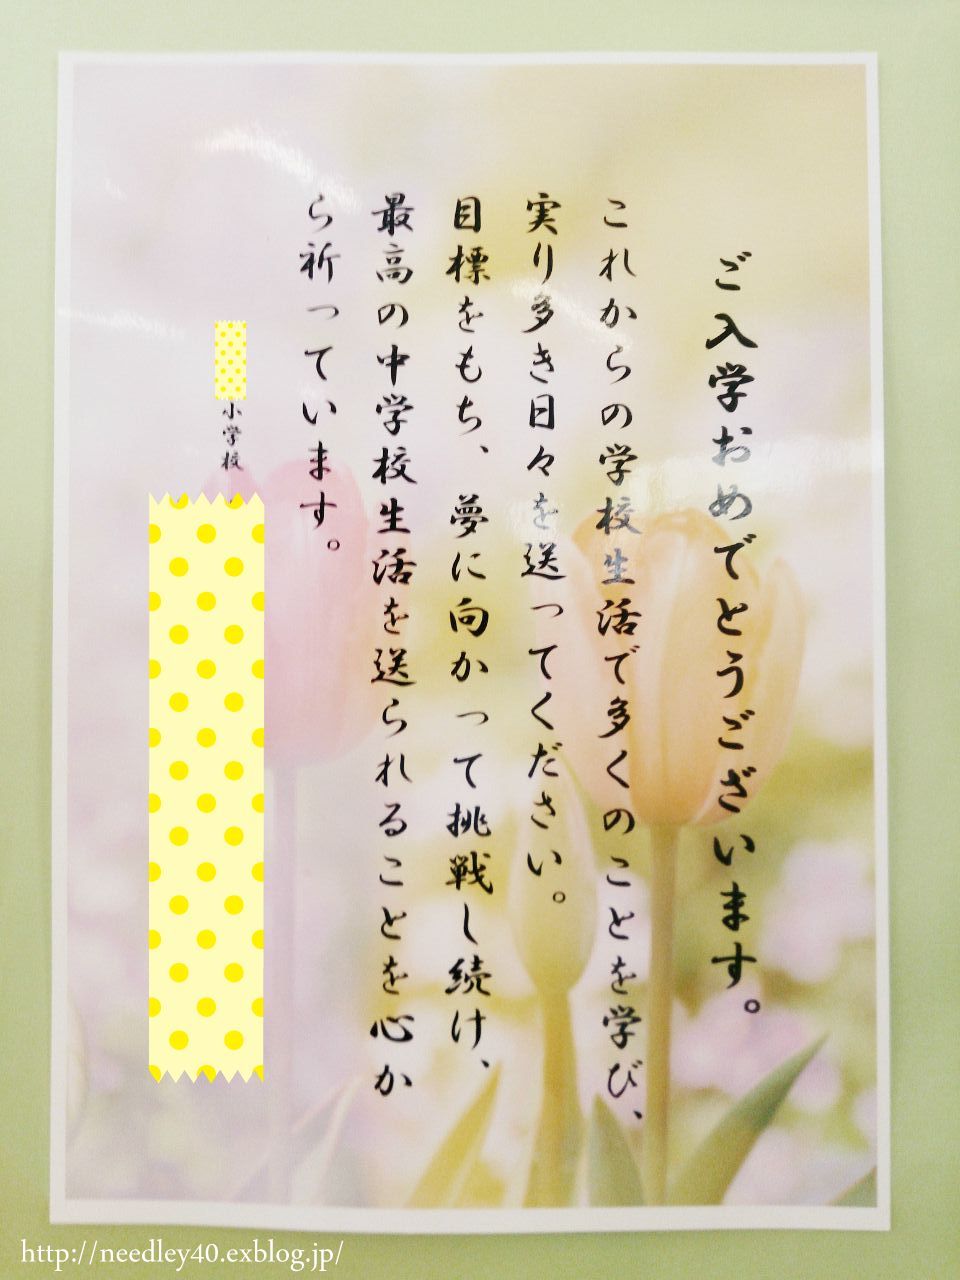 ご入学おめでとうございます。
これからの学校生活で多くのことを学び、
実り多き日々を送ってください。
目標をもち、夢に向かって挑戦し続け、
最高の中学校生活を送られることを心か
ら祈っています。
小学校
http://needley40.exblog.jp/